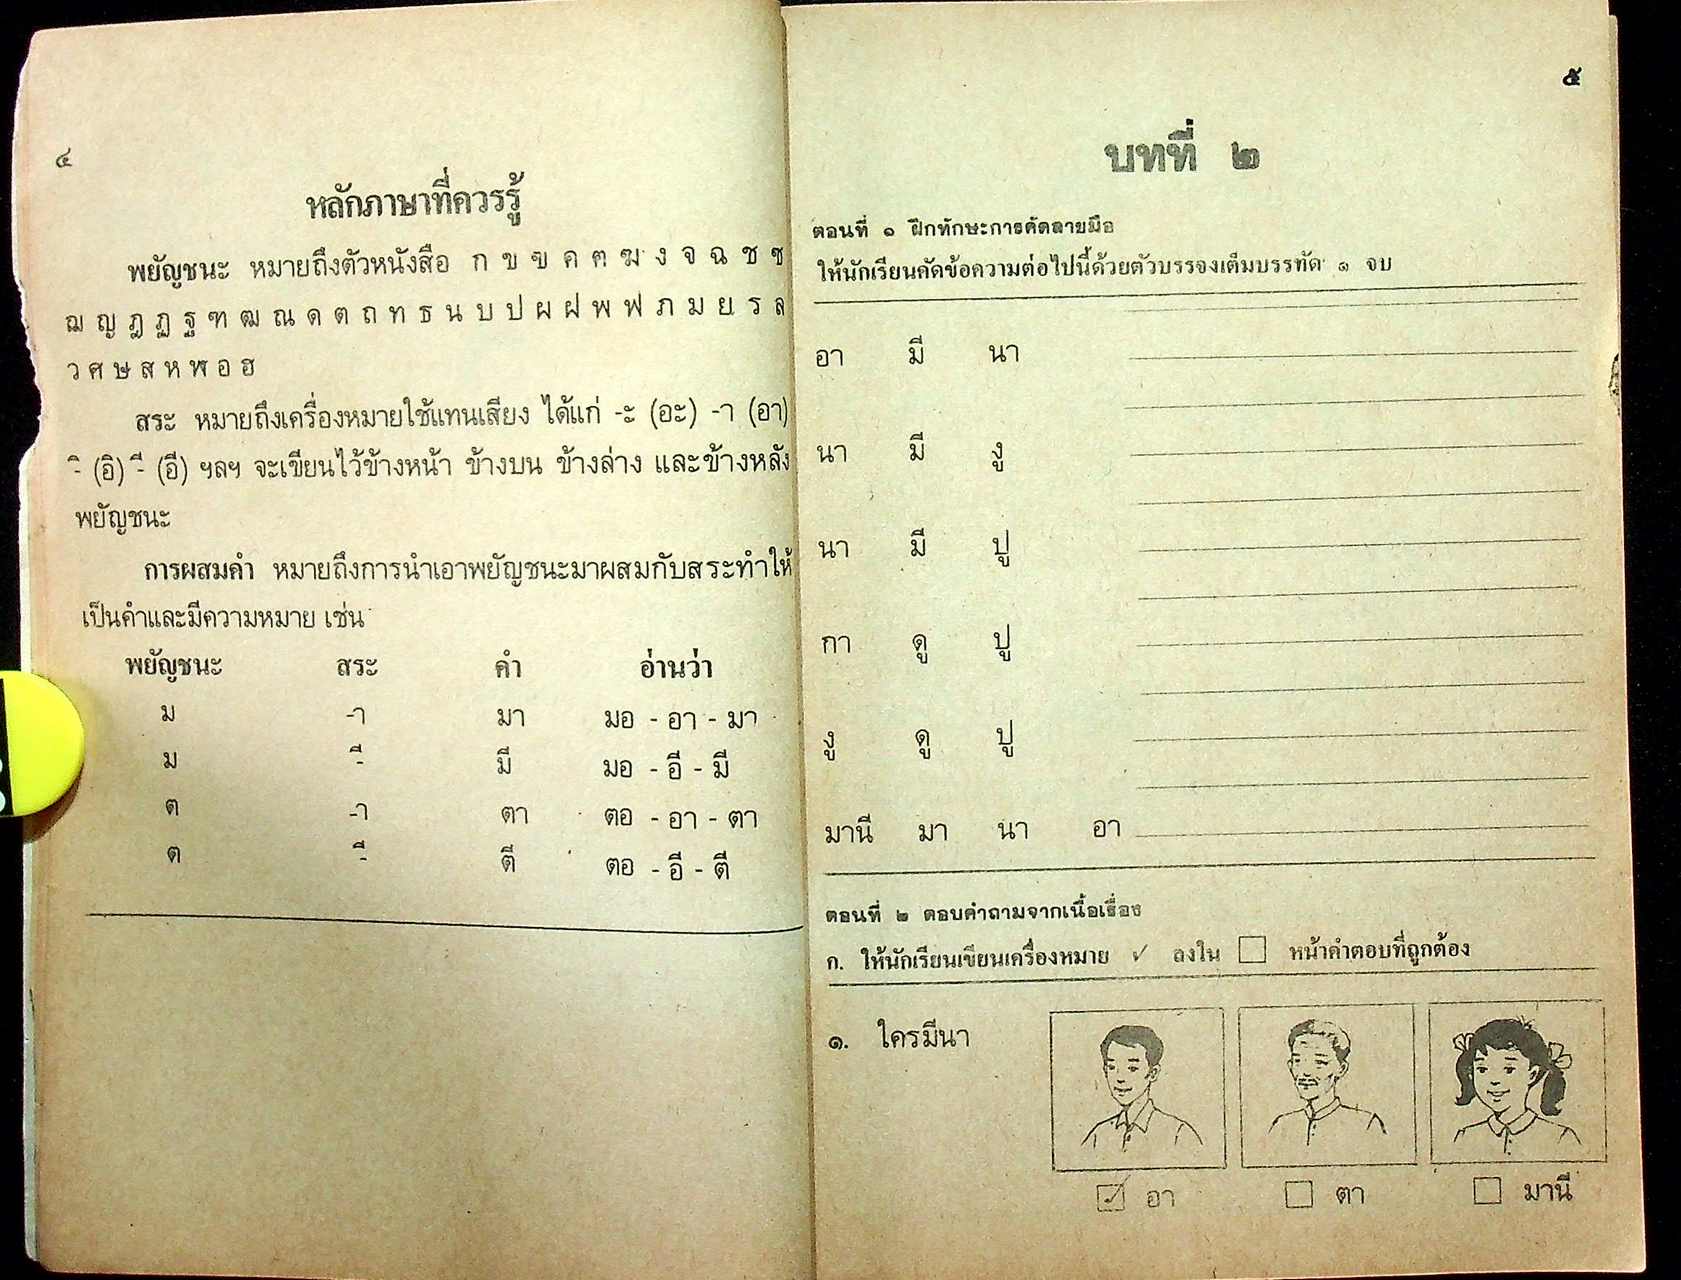 ๔
หลักภาษาที่ควรรู้
พยัญชนะ หมายถึงตัวหนังสือ ก ข ฃ ค ฅ ฆ ง จ ฉ ช ซ
ฌ ญ ฎ ฏ ฐ ฑ ฒ ณ ด ต ถ ท ธ น บ ป ผ ฝ พ ฟ ภ ม ย ร ล
ว ศ ษ ส ห ฬ อ ฮ
สระ หมายถึงเครื่องหมายใช้แทนเสียง ได้แก่ -ะ (อะ) -า (อา)
-ิ (อิ) -ี (อี) ฯลฯ จะเขียนไว้ข้างหน้า ข้างบน ข้างล่าง และข้างหลัง
พยัญชนะ
การผสมคำ หมายถึงการนำเอาพยัญชนะมาผสมกับสระทำให้
เป็นคำและมีความหมาย เช่น
พยัญชนะ สระ คำ อ่านว่า
ม -า มา มอ - อา - มา
ม -ี มี มอ - อี - มี
ต -า ตา ตอ - อา - ตา
ต -ี ตี ตอ - อี - ตี
๕
บทที่ ๒
ตอนที่ ๑ ฝึกทักษะการคัดลายมือ
ให้นักเรียนคัดข้อความต่อไปนี้ด้วยตัวบรรจงเต็มบรรทัด ๑ จบ
อา มี นา
นา มี งู
นา มี ปู
กา ดู ปู
งู ดู ปู
มานี มา นา อา
ตอนที่ ๒ ตอบคำถามจากเนื้อเรื่อง
ก. ให้นักเรียนเขียนเครื่องหมาย ✓ ลงใน ☐ หน้าคำตอบที่ถูกต้อง
๑. ใครมีนา
☑ อา ☐ ตา ☐ มานี